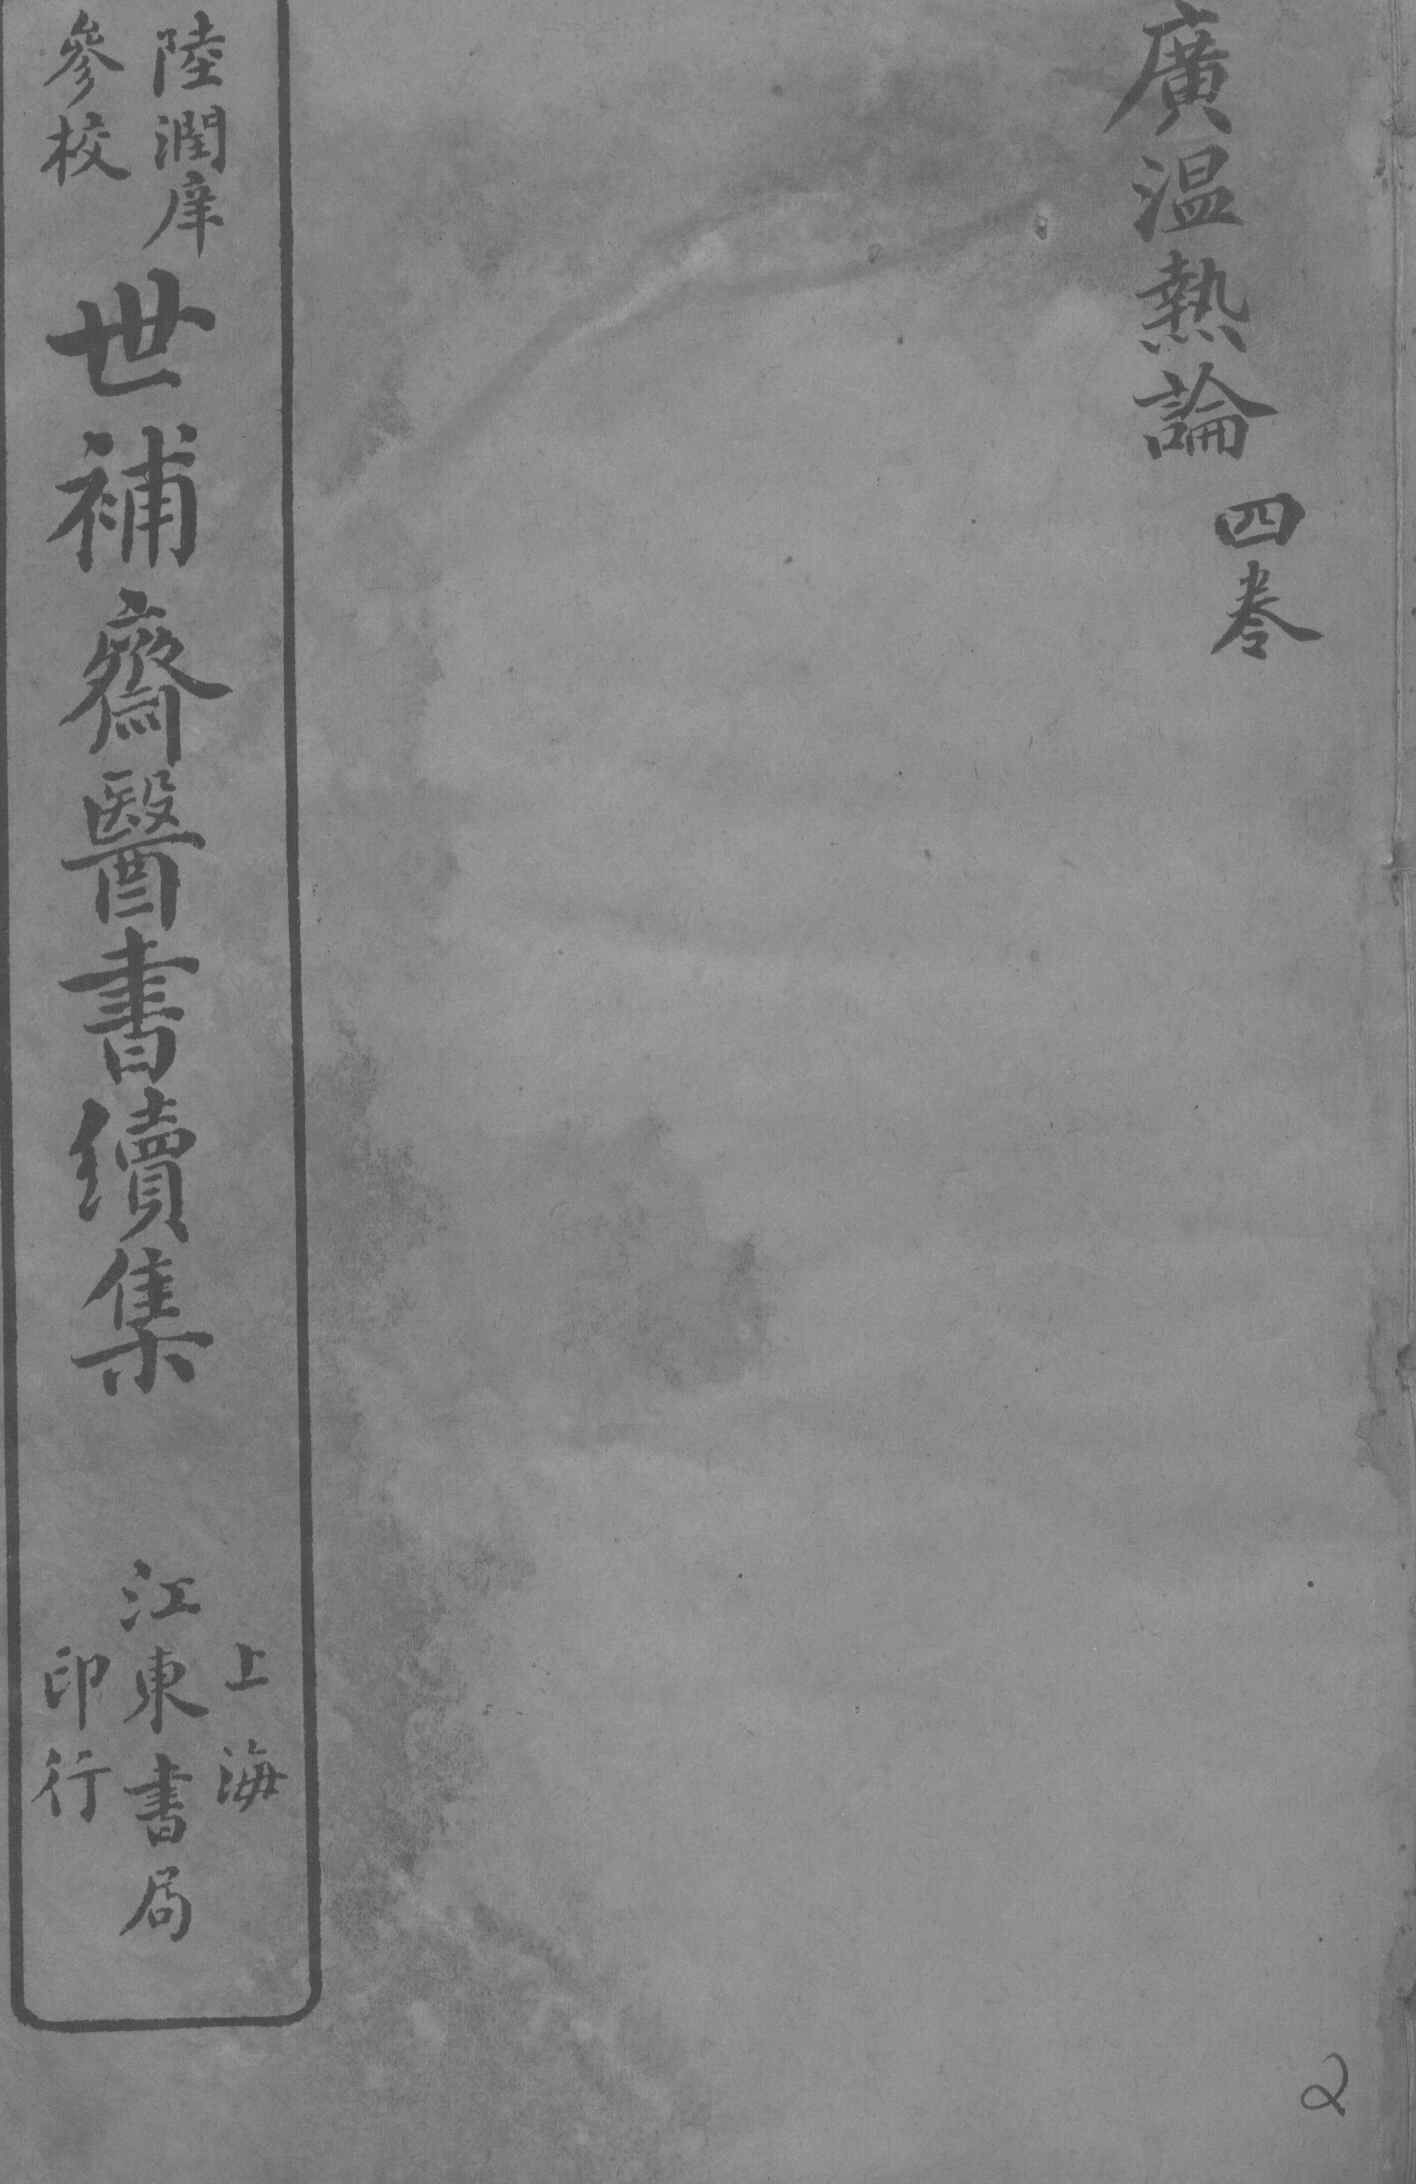 廣温熱論
四卷
陸潤庠
參校
世補齋醫書續集
上海
江東書局
印行
2